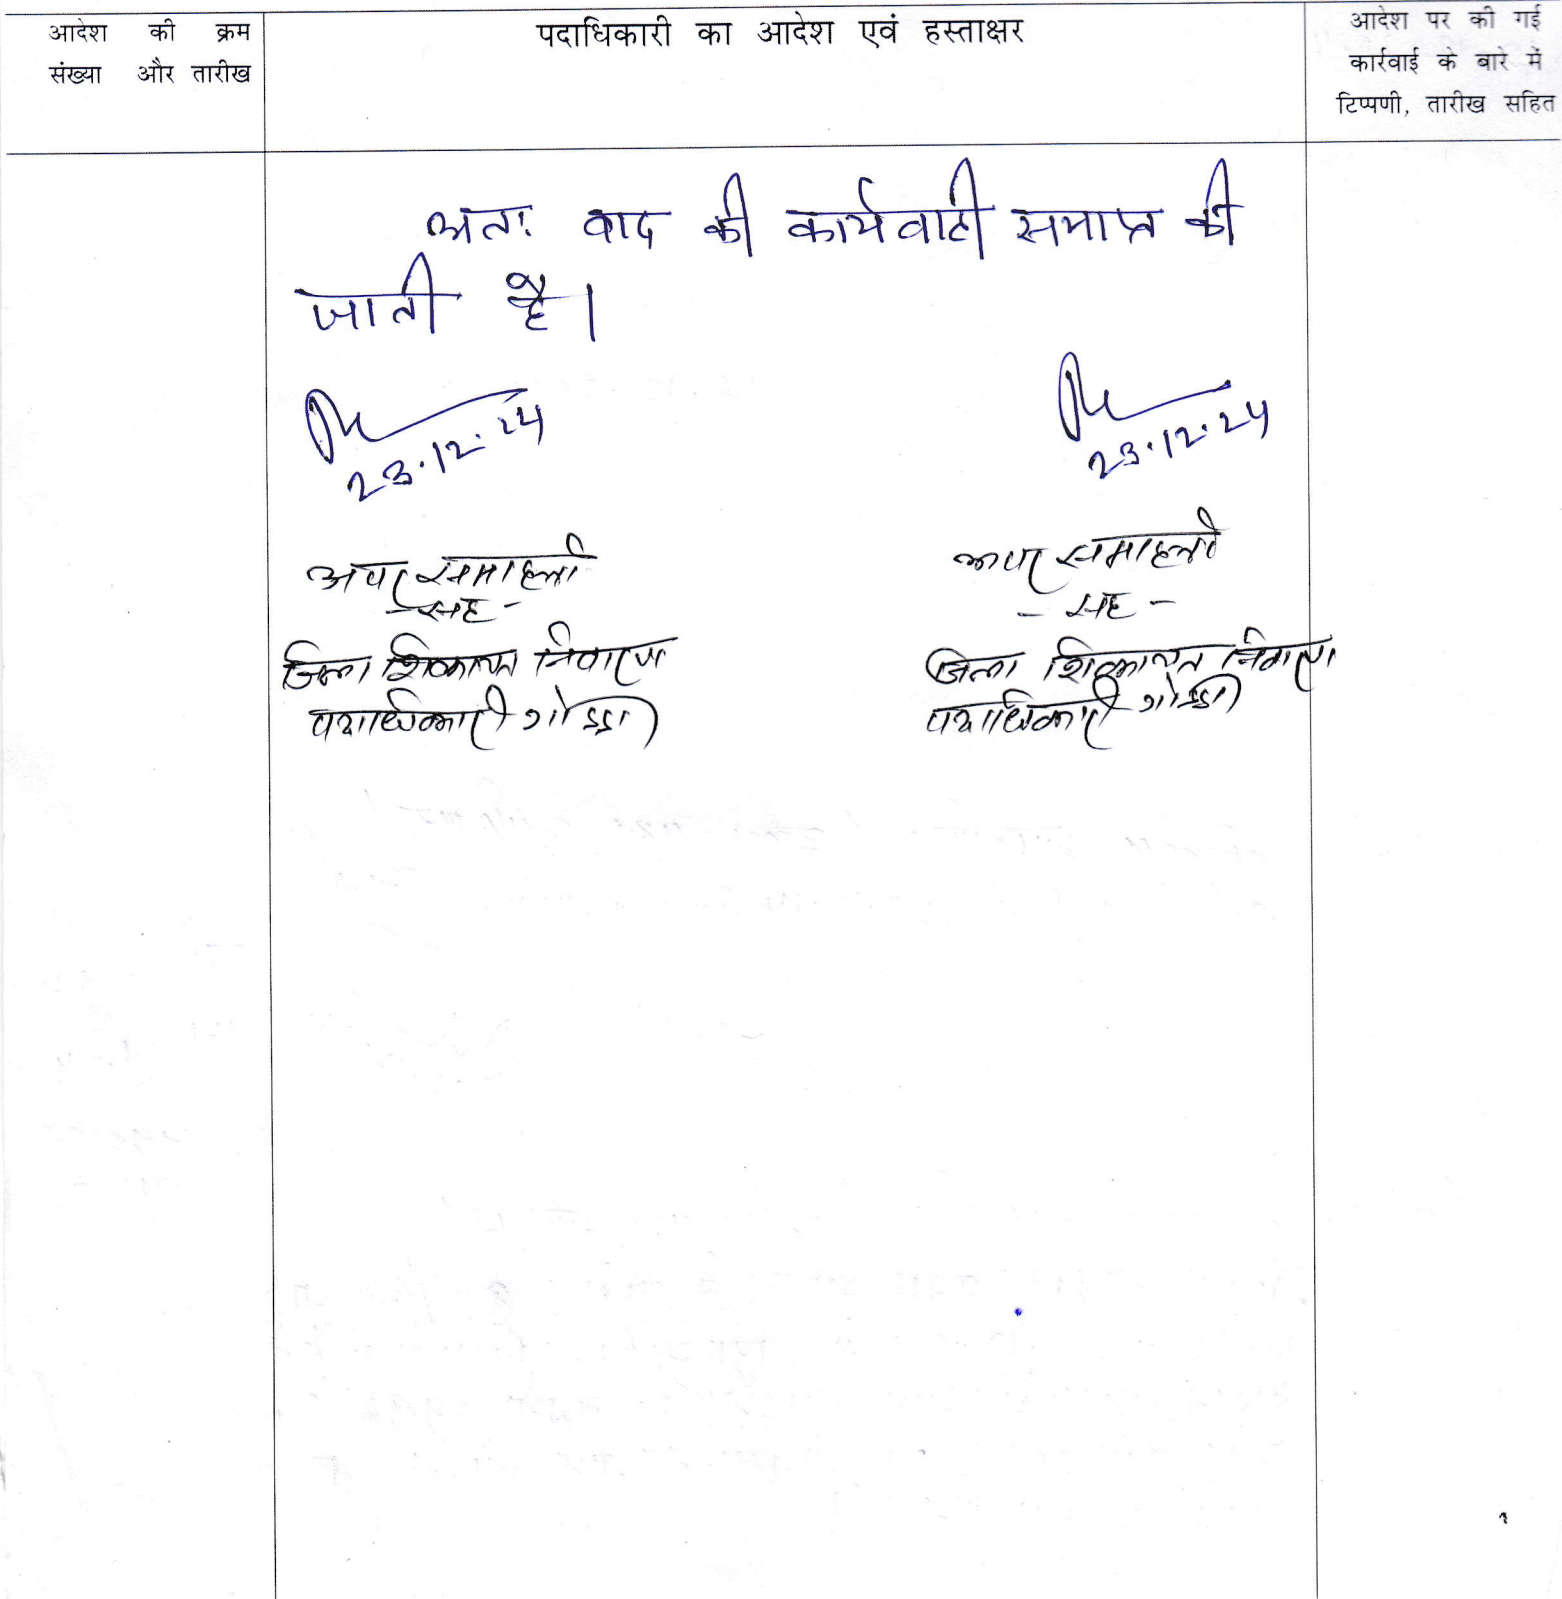 आदेश की क्रम
संख्या और तारीख
पदाधिकारी का आदेश एवं हस्ताक्षर
आदेश पर की गई
कार्रवाई के बारे में
टिप्पणी, तारीख सहित
अतः वाद की कार्यवाही समाप्त की
जाती है।
23.12.24
23.12.24
अपर समाहर्ता
- सह -
जिला शिकायत निवारण
पदाधिकारी गोड्डा
अपर समाहर्ता
- सह -
जिला शिकायत निवारण
पदाधिकारी गोड्डा